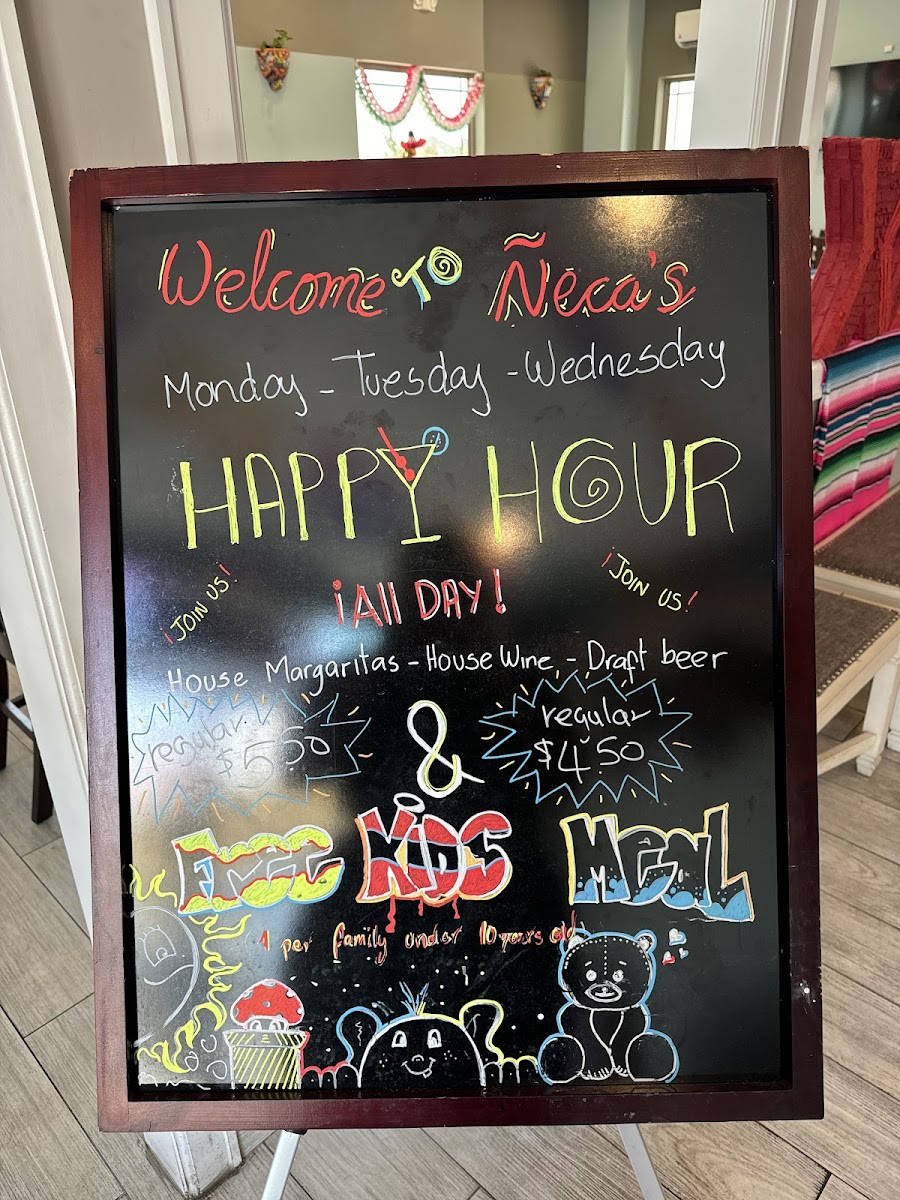 Welcome To Ñeca's
Monday - Tuesday - Wednesday
HAPPY HOUR
¡JOIN US!
¡JOIN US!
¡All DAY!
House Margaritas - House Wine - Draft beer
regular
$5.50
&
regular
$4.50
Free KiDS Meal
1 per family under 10 years old